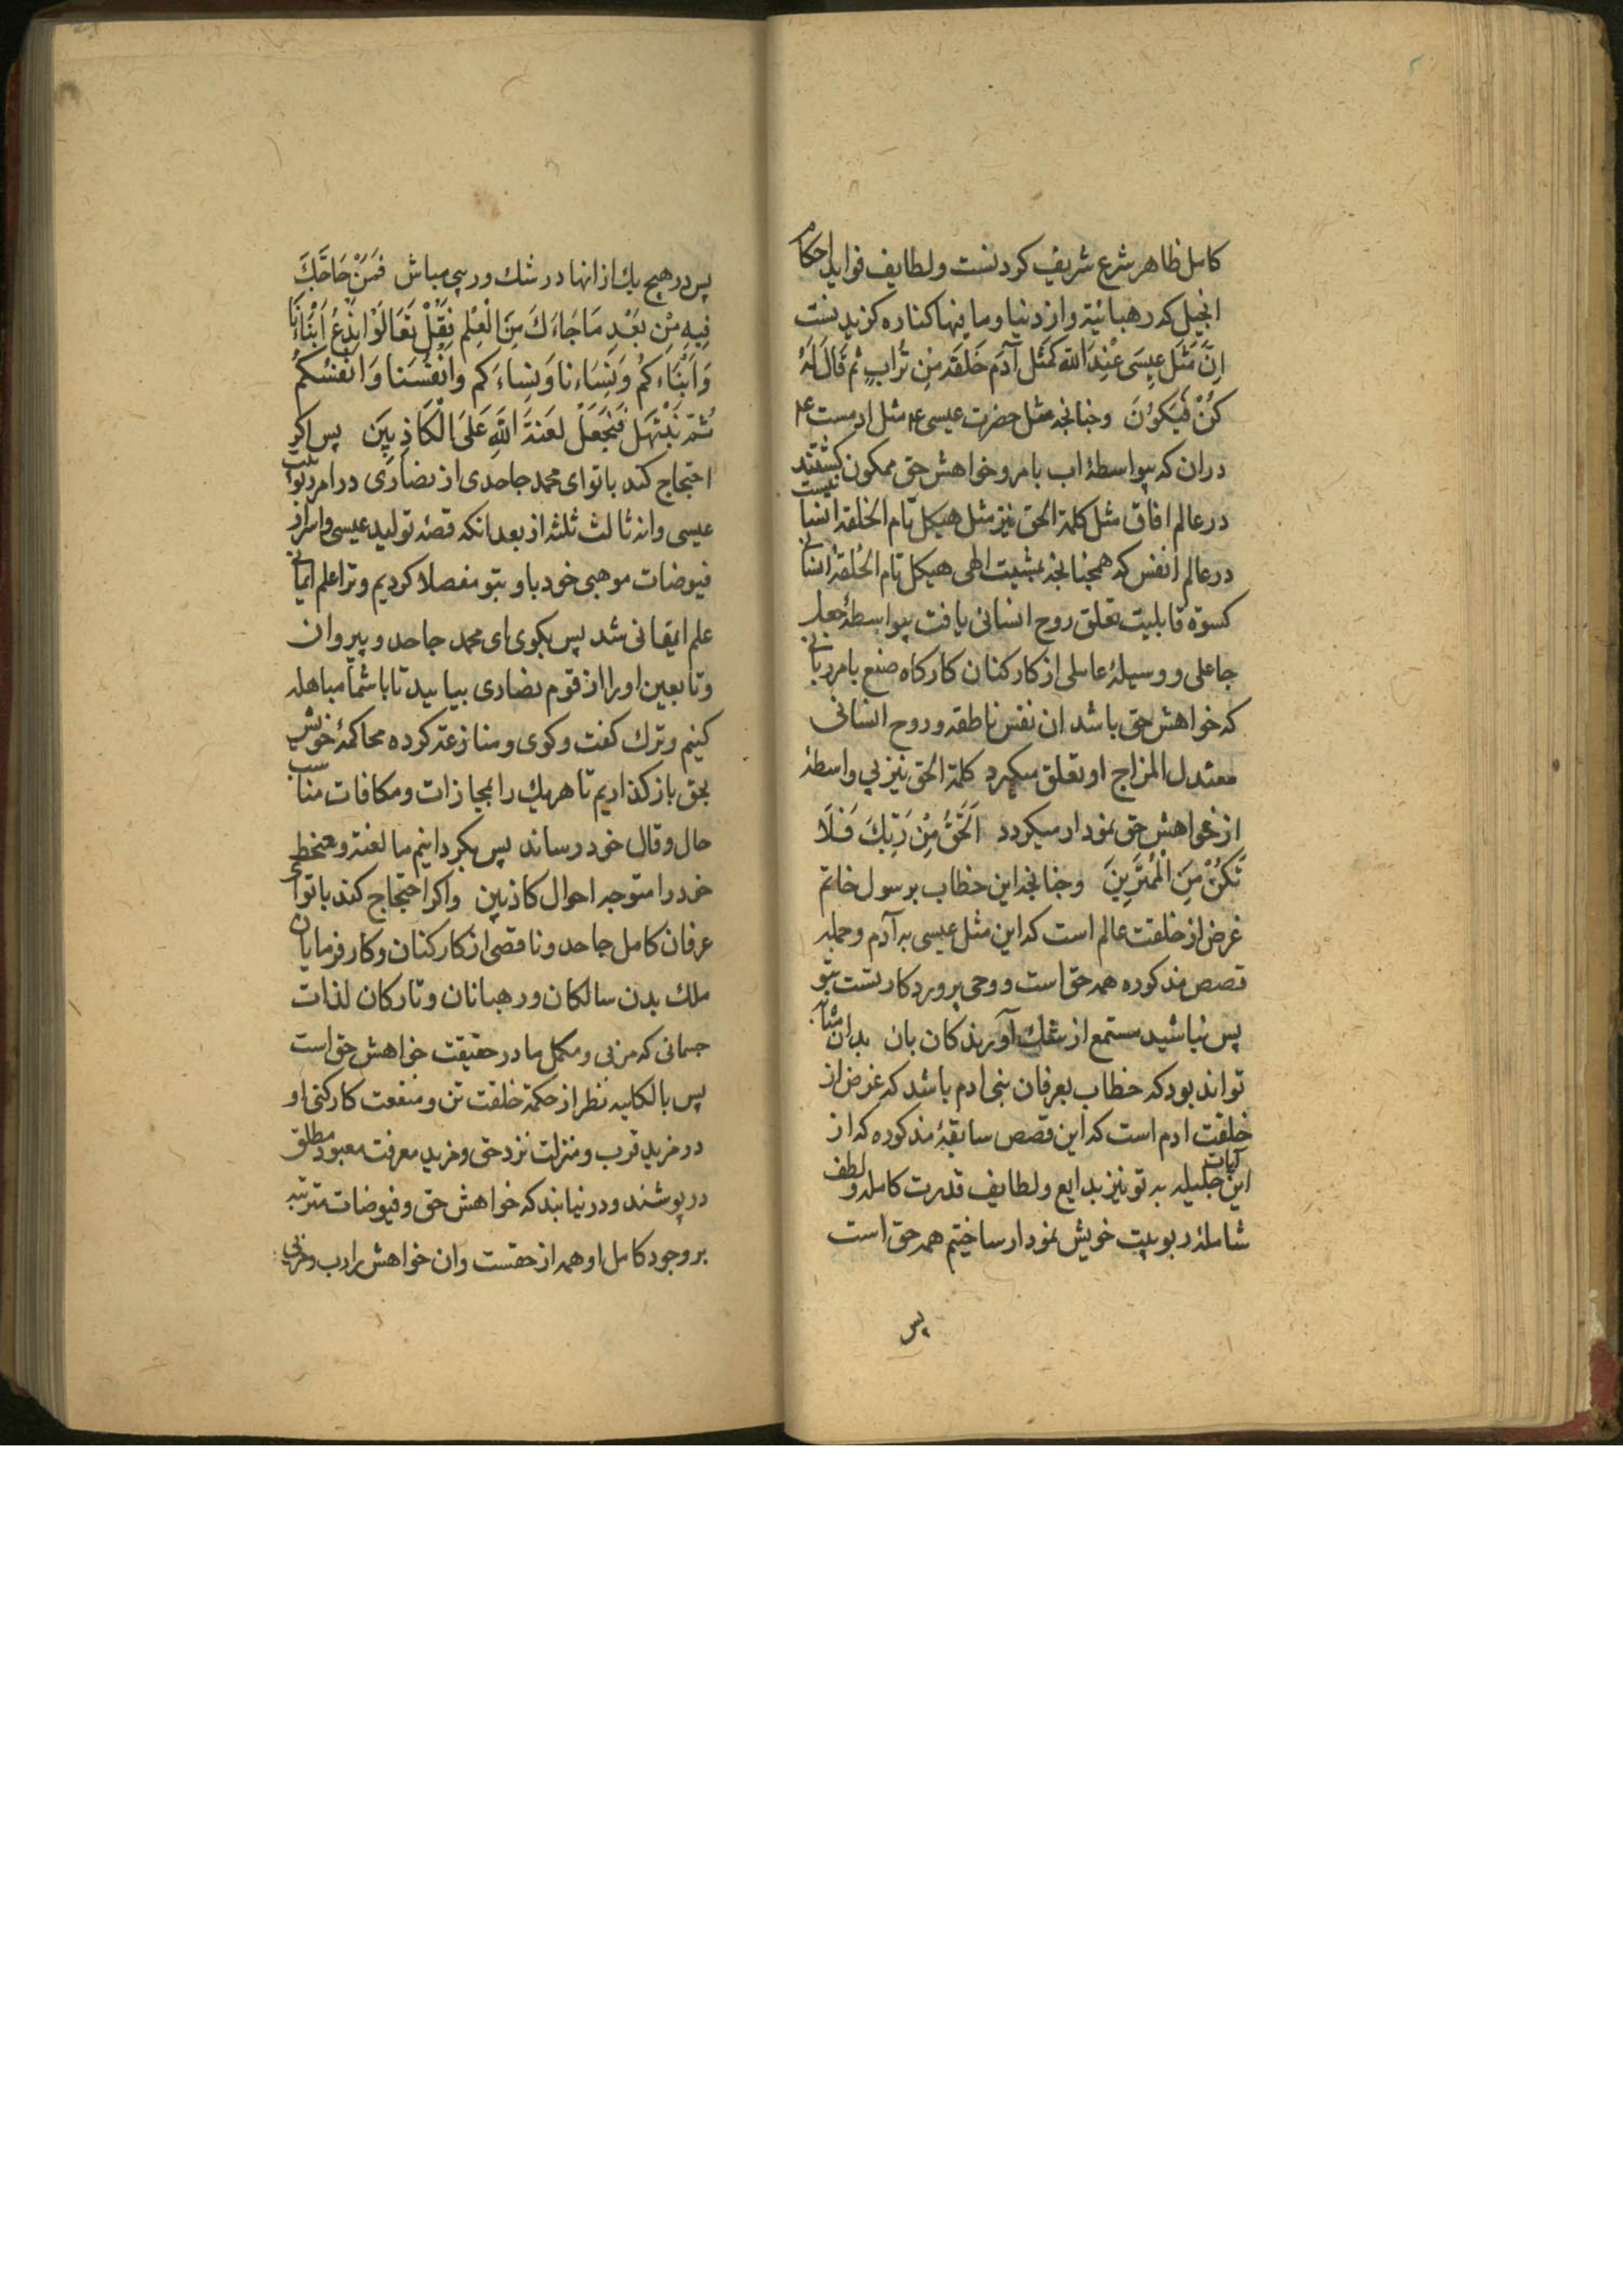 کامل ظاهر شرع شریف کردنست ولطایف فواید احکام
انجیل که رهبانیّة واز دنیا وما فیها کناره کزیدنست
اِنَّ مَثَلَ عِیسَی عِنْدَ اللهِ کَمَثَلِ آدَمَ خَلَقَهُ مِنْ تُرَابٍ ثُمَّ قَالَ لَهُ
کُنْ فَیَکُونُ وچنانچه مثل حضرت عیسی ع۴ مثل ادمست ع۴
در ان که بیواسطهٔ اب بامر وخواهش حق ممکون کشتند
در عالم افاق مثل کلمة الحق نیز مثل هیکل تام الخلقهٔ انسانیست
در عالم انفس که همچنانچه بمشیت الهی هیکل تام الخلقهٔ انسانی
کسوة قابلیت تعلق روح انسانی یافت بیواسطهٔ جعل
جاعلی ووسیلهٔ عاملی از کارکنان کارکاه صنع بامر ربانی
که خواهش حق باشد ان نفس ناطقه وروح انسانی
معتدل المزاج او تعلق میکیرد کلمة الحق نیز بی واسطهٔ
از خواهش حق نمودار میکردد اَلْحَقُّ مِنْ رَبِّکَ فَلَا
تَکُنْ مِنَ الْمُمْتَرِینَ وچنانچه این خطاب برسول خاتم
غرض از خلقت عالم است که این مثل عیسی به آدم وجمله
قصص مذکوره همه حق است ووحی پروردکار تست بتو
پس نباشید مستمع از شک آورندکان بان بدان مثابه
تواند بود که خطاب بعرفان بنی ادم باشد که غرض از
خلقت ادم است که این قصص سابقهٔ مذکوره که از
این آیات جلیله به تو نیز بدایع ولطایف قدرت کامله ولطف
شاملهٔ ربوبیت خویش نمودار ساختیم همه حق است
پس
پس در هیچ یک از انها در شک وریبی مباش فَمَنْ حَاجَّکَ
فِیهِ مِنْ بَعْدِ مَا جَاءَکَ مِنَ الْعِلْمِ فَقُلْ تَعَالَوْا نَدْعُ اَبْنَاءَنَا
وَاَبْنَاءَکُمْ وَنِسَاءَنَا وَنِسَاءَکُمْ وَاَنْفُسَنَا وَاَنْفُسَکُمْ
ثُمَّ نَبْتَهِلْ فَنَجْعَلْ لَعْنَةَ اللهِ عَلَی الْکَاذِبِینَ پس اکر
احتجاج کند با تو ای محمد جاحدی از نصاری در امر ربوبیت
عیسی وانه ثالث ثلثه از بعد انکه قصهٔ تولید عیسی واسرار
فیوضات موهبی خود با او بتو مفصلا کردیم وترا علم ایمانی
علم ایقانی شد پس بکوی ای محمد جاحد و پیروان
وتابعین او را از قوم نصاری بیایید تا با شما مباهله
کنیم وترک کفت وکوی ومنازعه کرده محاکمهٔ خویش
بحق باز کذاریم تا هر یک را بمجازات ومکافات مناسب
حال وقال خود رساند پس بکردانیم ما لعنة و سخط
خود را متوجه احوال کاذبین واکر احتجاج کند با تو ای
عرفان کامل جاحد وناقصی از کارکنان وکارفرمایان
ملک بدن سالکان ورهبانان وتارکان لذات
جسمانی که مربی ومکمل ما در حقیقت خواهش حق است
پس بالکلیه نظر از حکمة خلقت تن ومنفعت کارکنی او
در مزید قرب ومنزلت نزد حق ومزید معرفت معبود مطلق
در پوشند ودر نیابند که خواهش حق وفیوضات مترتبه
بر وجود کامل او همه از حقست وان خواهش را رب ومربی